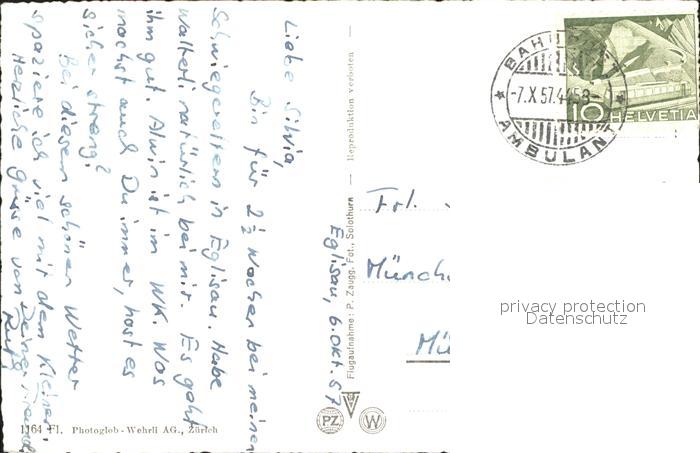 Eglisau, 6. Okt. 57
Liebe Silvia,
Bin für 2½ Wochen bei meinen
Schwiegereltern in Eglisau. Habe
Walterli natürlich bei mir. Es geht
ihm gut. Alwin ist im WK. Was
machst auch Du immer, hast es
sicher streng?
Bei diesem schönen Wetter
spaziere ich viel mit dem Kleinen.
Herzliche Grüsse von Deiner Freundin
Ruth
1164 Fl. Photoglob-Wehrli AG., Zürich
Flugaufnahme: P. Zaugg. Fot., Solothurn — Reproduktion verboten —
PZ
W
BAHNPOST
-7.X.57
AMBULANT
10 HELVETIA
Frl.
Münch
Mü
privacy protection
Datenschutz